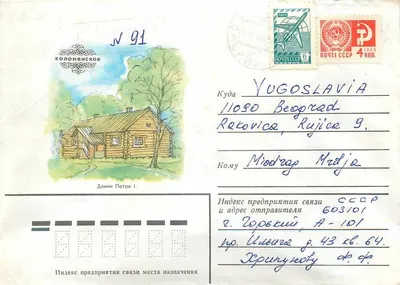 N 91
КОЛОМЕНСКОЕ
ПОЧТА СССР
4 КОП.
Домик Петра I.
Куда YUGOSLAVIA
11090 Beograd
Rakovica, Rujica 9.
Кому Miodrag Mrdja
Индекс предприятия связи СССР
и адрес отправителя 603101
г. Горький, А-101
пр. Ильича д. 43 кв. 64.
Хрипунову Ф. Ф.
Индекс предприятия связи места назначения